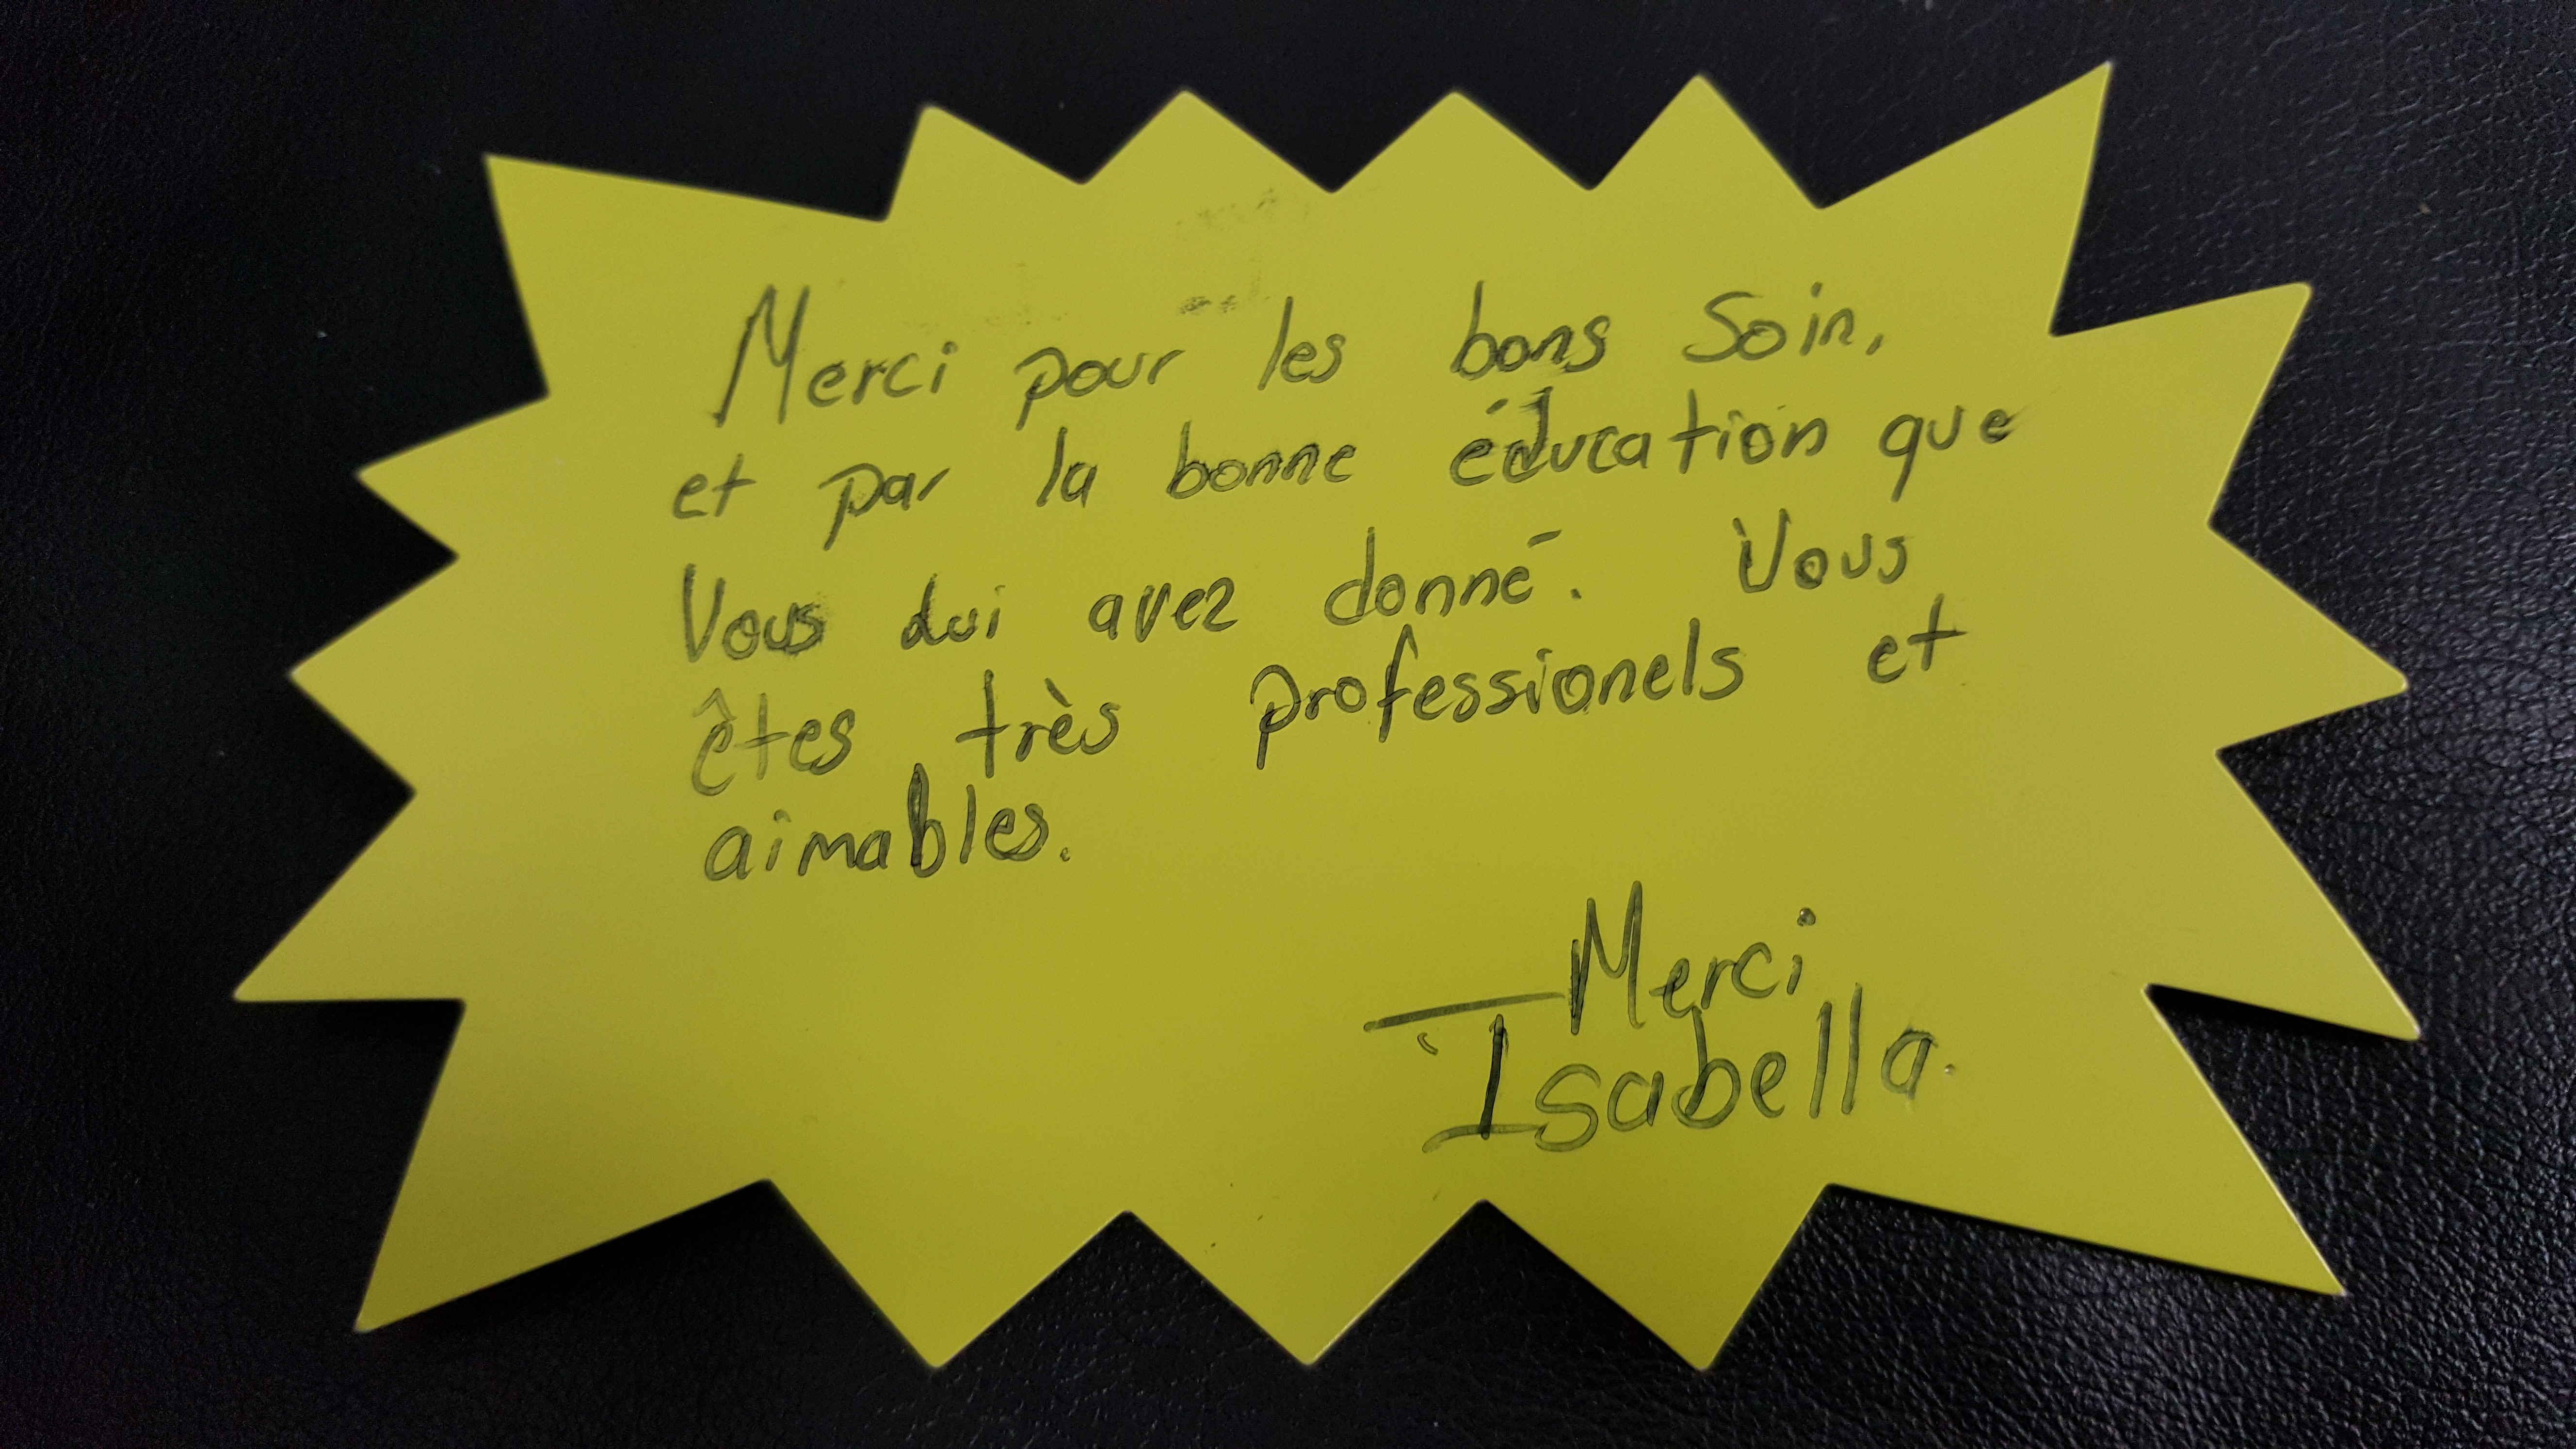 Merci pour les bons Soin,
et par la bonne éducation que
Vous lui avez donné. Vous
êtes très professionels et
aimables.
Merci
Isabella.